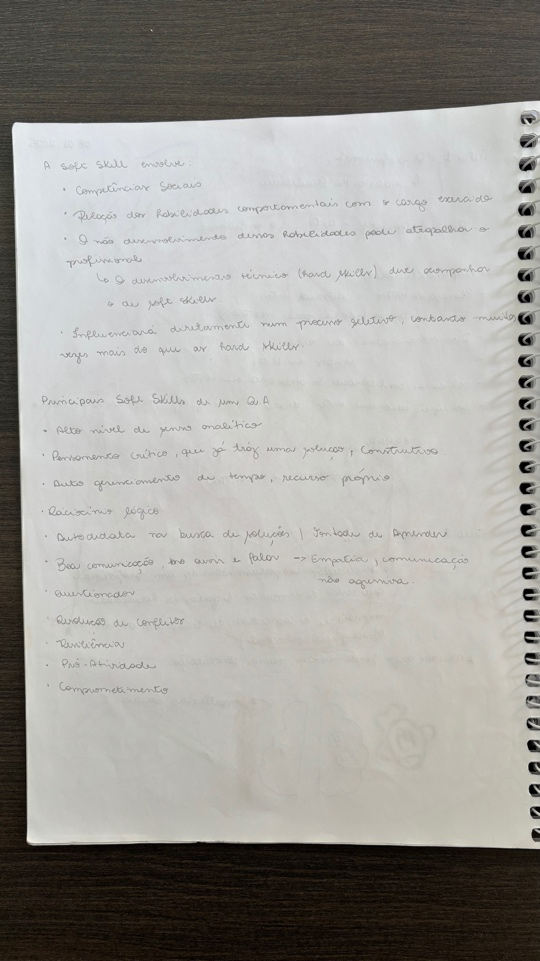 A soft skill envolve:
· Competências Sociais
· Relação das habilidades comportamentais com o cargo exercido
· O não desenvolvimento dessas habilidades pode atrapalhar o
profissional
↳ O desenvolvimento técnico (hard skills) deve acompanhar
o de soft skills
· Influenciará diretamente num processo seletivo, contando muitas
vezes mais do que as hard skills.
Principais Soft Skills de um Q.A
· Alto nível de senso analítico
· Pensamento crítico, que já tráz uma solução, construtivo
· Auto gerenciamento de tempo, recurso próprio
· Raciocínio lógico
· Autodidata na busca de soluções | Vontade de Aprender
· Boa comunicação, ouvir e falar -> Empatia, comunicação
não agressiva.
· Questionador
· Resolução de conflitos
· Resiliência
· Pró-Atividade
· Comprometimento